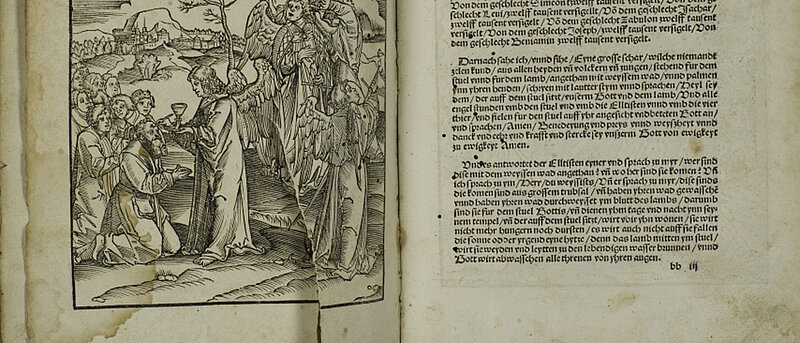 Von dem geschlecht Simeon zwelff tausent versigelt / Von dem ge
schlecht Levi / zwelff tausent versigelt / Võ dem geschlecht Isachar /
zwelff tausent versigelt / Võ dem geschlecht Zabulon zwelff tausent
versigelt / Von dem geschlecht Joseph / zwelff tausent versigelt / Von
dem geschlecht Benjamin zwelff tausent versigelt.
Darnach sahe ich / vnnd sihe / Eyne grosse schar / wilche niemandt
zelen kund / aus allen heyden vñ volckern vñ zungen / stehend fur dem
stuel vnnd fur dem lamb / angethan mit weyssem wad / vnnd palmen
ynn yhren henden / schryen mit lautter stym vnnd sprachen / Heyl sey
dem / der auff dem stuel sitzt / vnserm Gott vnnd dem lamb / Vnd alle
engel stunden vmb den stuel vnd vmb die Elltisten vnnd vmb die vier
thier / vnd fielen fur den stuel auff yhr angesicht vnd betten Gott an /
vnd sprachen / Amen / Benedeyung vnd preys vnnd weyszheyt vnnd
danck vnd ehre vnd krafft vnd stercke sey vnszerm Gott von ewigkeyt
zu ewigkeyt Amen.
Vnd es antwortet der Elltisten eyner vnd sprach zu myr / wer sind
dise mit dem weyssen wad angethan? vñ wo her sind sie komen? Vñ
ich sprach zu ym / Herr / du weyssists / Vñ er sprach zu myr / dise sinds
die komen sind aus grossem trubsal / vnnd haben yhren wad gewasschē
vnnd haben yhren wad durchweysset ym blutt des lambs / darumb
sind sie fur dem stuel Gottis / vñ dienen yhm tage vnd nacht ynn sey
nem tempel / vñ der auff dem stuel sitzt / wirt vbir yhn wonen / sie wirt
nicht mehr hungern noch dursten / es wirt auch nicht auff sie fallen
die sonne odder yrgend eyne hytze / denn das lamb mitten ym stuel /
wirt sie weyden vnd leytten zu den lebendigen wasser brunnen / vnnd
Gott wirt abwasschen alle threnen von yhren augen.
bb iij